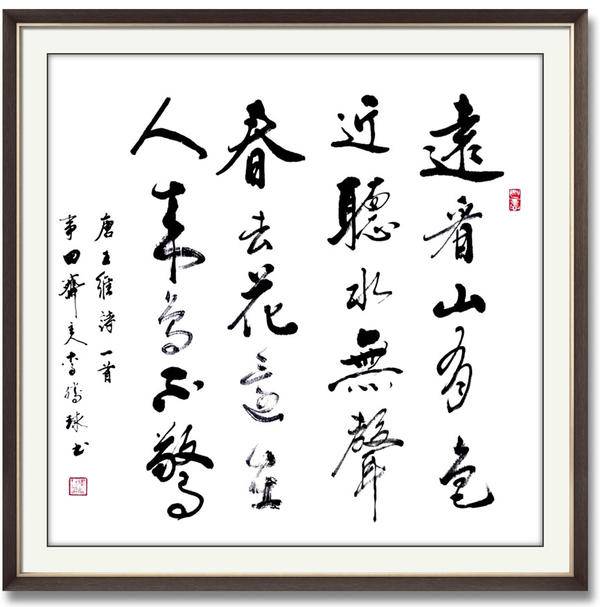 遠看山有色
近聽水無聲
春去花還在
人來鳥不驚
唐王維詩一首
田齋李球书